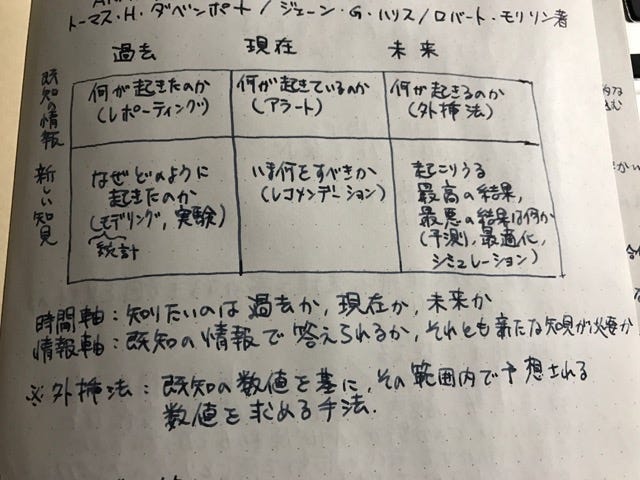 トーマス・H・ダベンポート/ジェーン・G・ハリス/ロバート・モリソン著
過去 現在 未来
既知の情報
何が起きたのか
(レポーティング)
何が起きているのか
(アラート)
何が起きるのか
(外挿法)
新しい知見
なぜどのように
起きたのか
(モデリング,実験)
統計
いま何をすべきか
(レコメンデーション)
起こりうる
最高の結果,
最悪の結果は何か
(予測,最適化,
シミュレーション)
時間軸:知りたいのは過去か,現在か,未来か
情報軸:既知の情報で答えられるか,それとも新たな知見が必要か
※外挿法:既知の数値を基に,その範囲内で予想される
数値を求める手法.